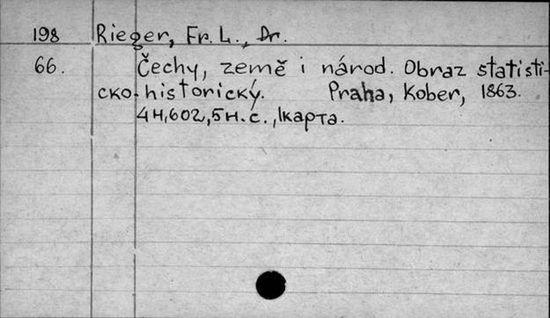 198 Rieger, Fr. L., Dr.
66. Čechy, země i národ. Obraz statisti-
cko-historický. Praha, Kober, 1863.
4н,602,5н.с., 1карта.